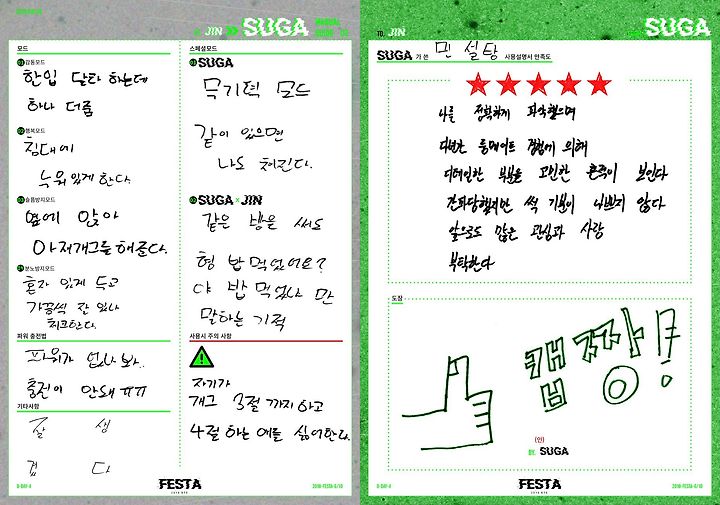 FESTA
JIN
SUGA
MANUAL
모드
01 감동모드
한입 달라 하는데
하나 더줌
02 행복모드
침대에
누워있게 한다.
03 슬픔방지모드
옆에 앉아
아재개그를 해준다.
04 분노방지모드
혼자 있게 두고
가끔씩 잔 있나
체크한다.
파워 충전법
파워가 없나봐..
충전이 안돼 ㅠㅠ
기타사항
잘 생
겼 다
스페셜모드
01 SUGA
무기력 모드
같이 있으면
나도 쳐진다.
02 SUGA x JIN
같은 방을 써도
형 밥 먹었어요?
야 밥 먹었냐 만
말하는 기적
사용시 주의 사항
자기가
개그 3절 까지 하고
4절 하는 애를 싫어한다.
D-DAY-4
FESTA
2018 BTS
2018-FESTA-G/10
TO. JIN
SUGA
SUGA 가 쓴 민 설탕 사용설명서 만족도
나를 정확하게 파악했으며
다년간 룸메이트 경험에 의해
디테일한 부분을 고민한 흔적이 보인다
간파당했지만 썩 기분이 나쁘지 않다
앞으로도 많은 관심과 사랑
부탁한다
도장
캡짱!
(인)
BY. SUGA
D-DAY-4
FESTA
2018 BTS
2018-FESTA-G/10